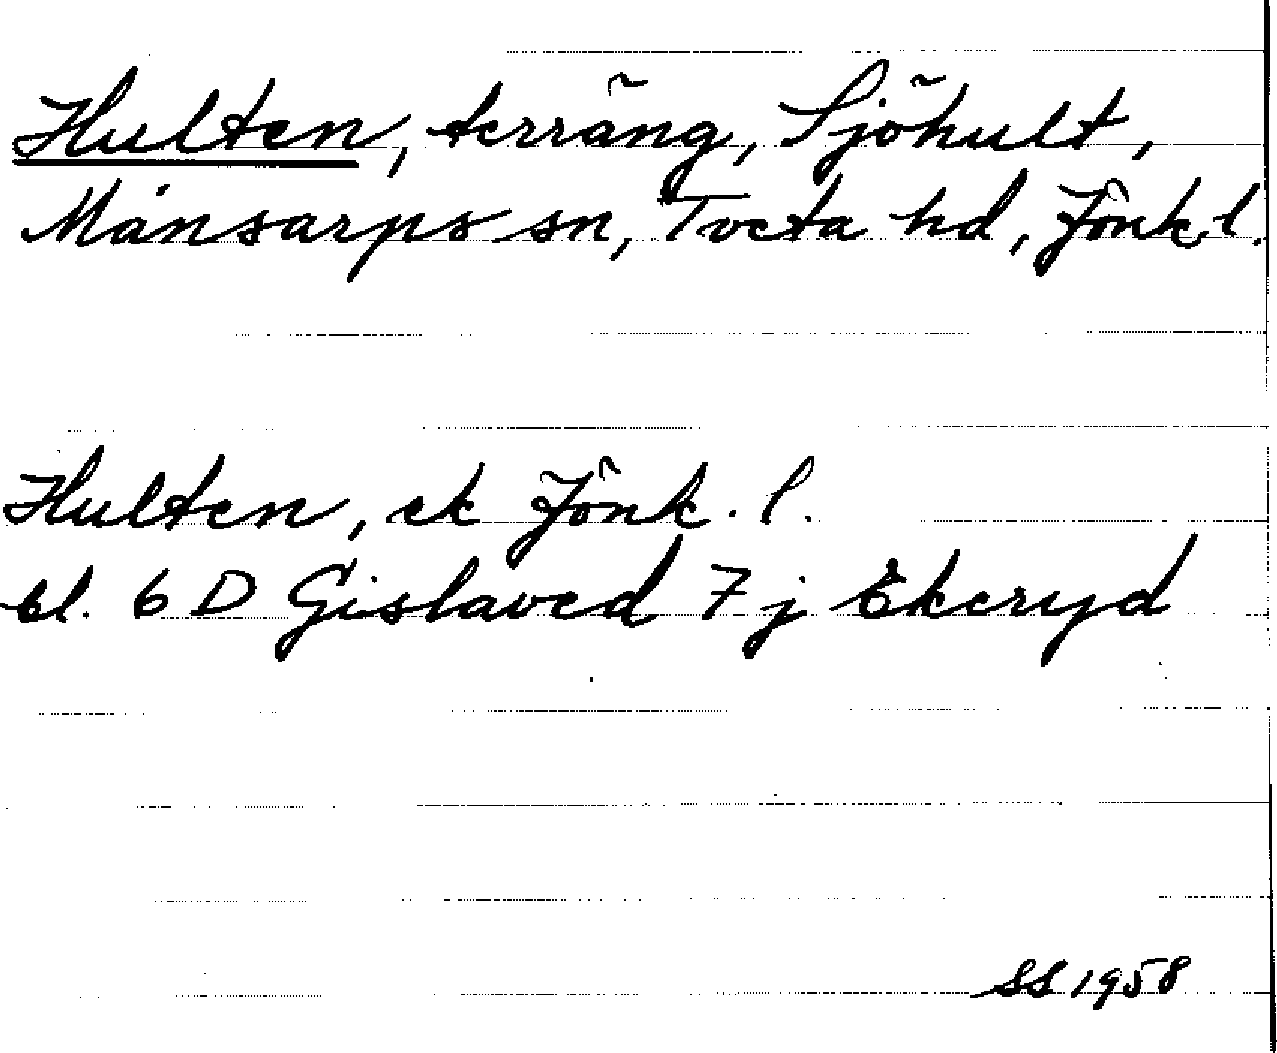 Hulten, terräng, Sjöhult,
Månsarps sn, Tveta hd, Jönk.l.
Hulten, ek Jönk. l.
bl. 6 D Gislaved 7 j Ekeryd
SS 1958